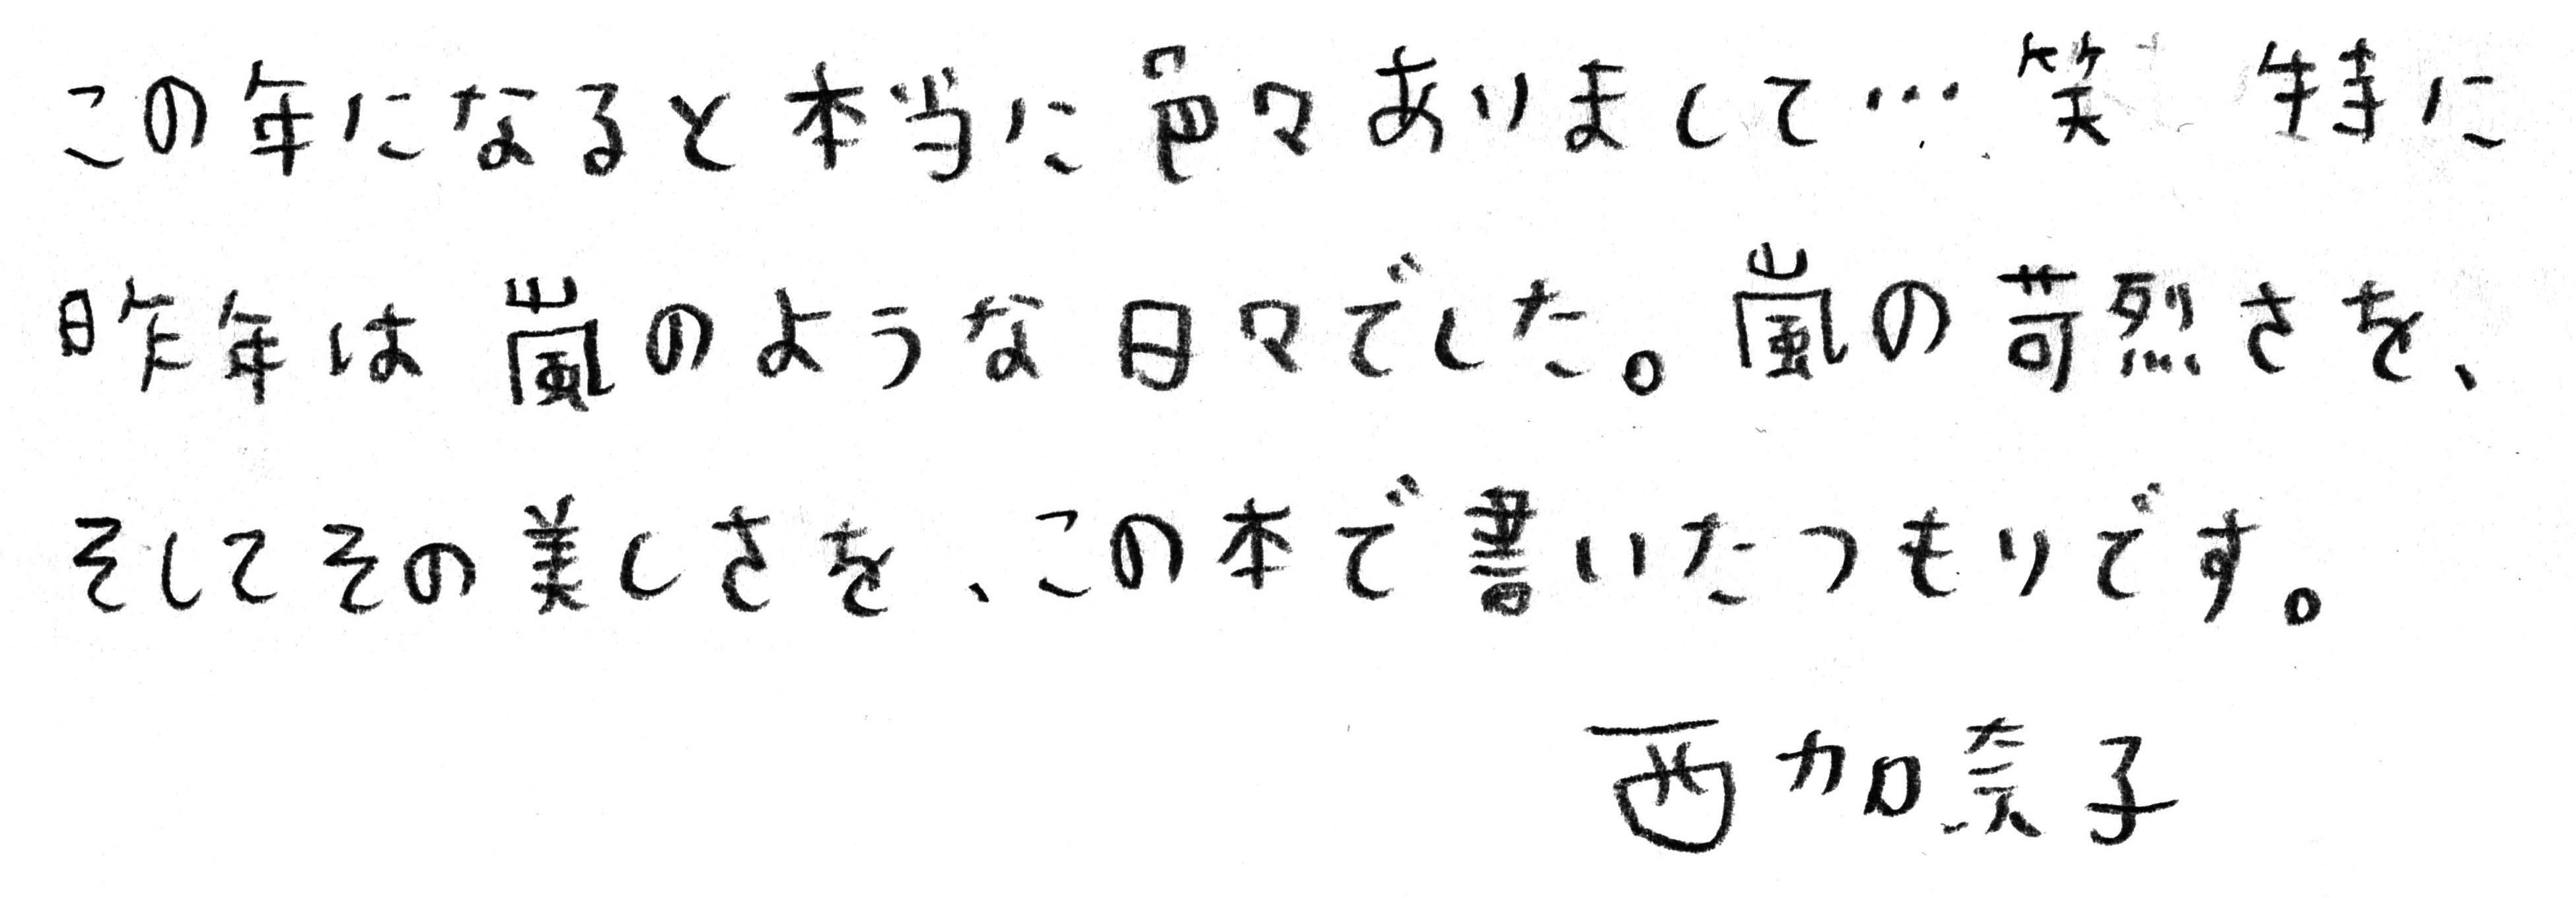 この年になると本当に色々ありまして…笑 特に
昨年は嵐のような日々でした。嵐の苛烈さを、
そしてその美しさを、この本で書いたつもりです。
西加奈子